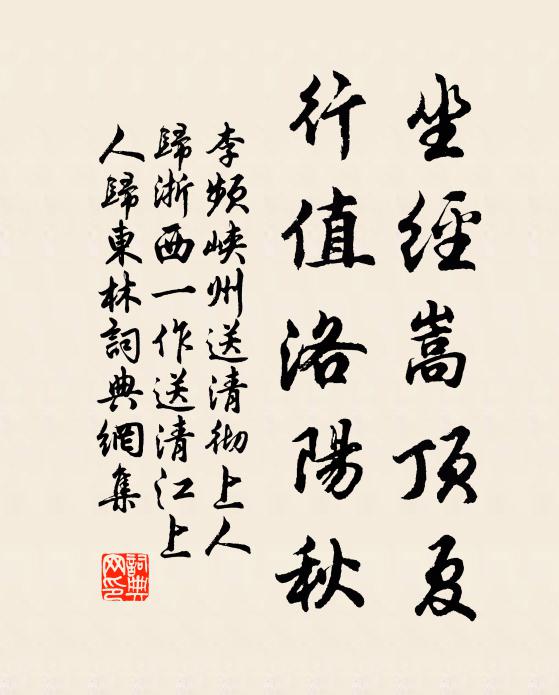 坐經嵩頂夏
行值洛陽秋
李頻峽州送清彻上人
歸浙西一作送清江上
人歸東林詞典網集
詞典
网印